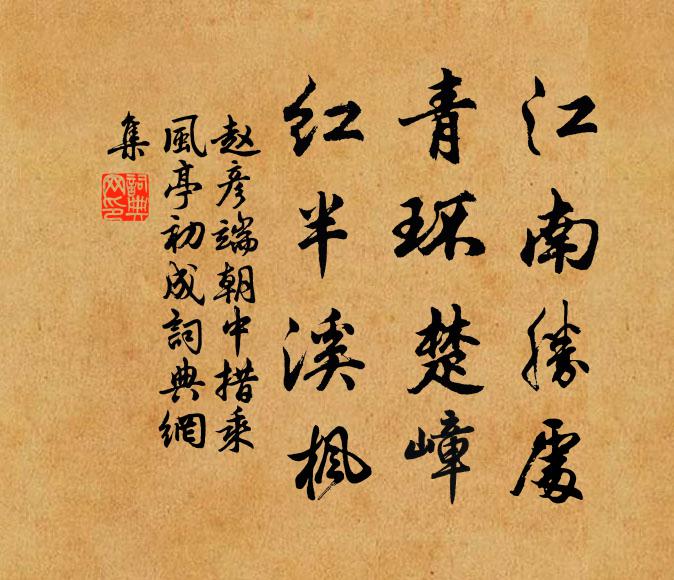 江南勝處
青环楚嶂
红半溪枫
赵彦端朝中措乘
風亭初成詞典網
集
詞典
网印